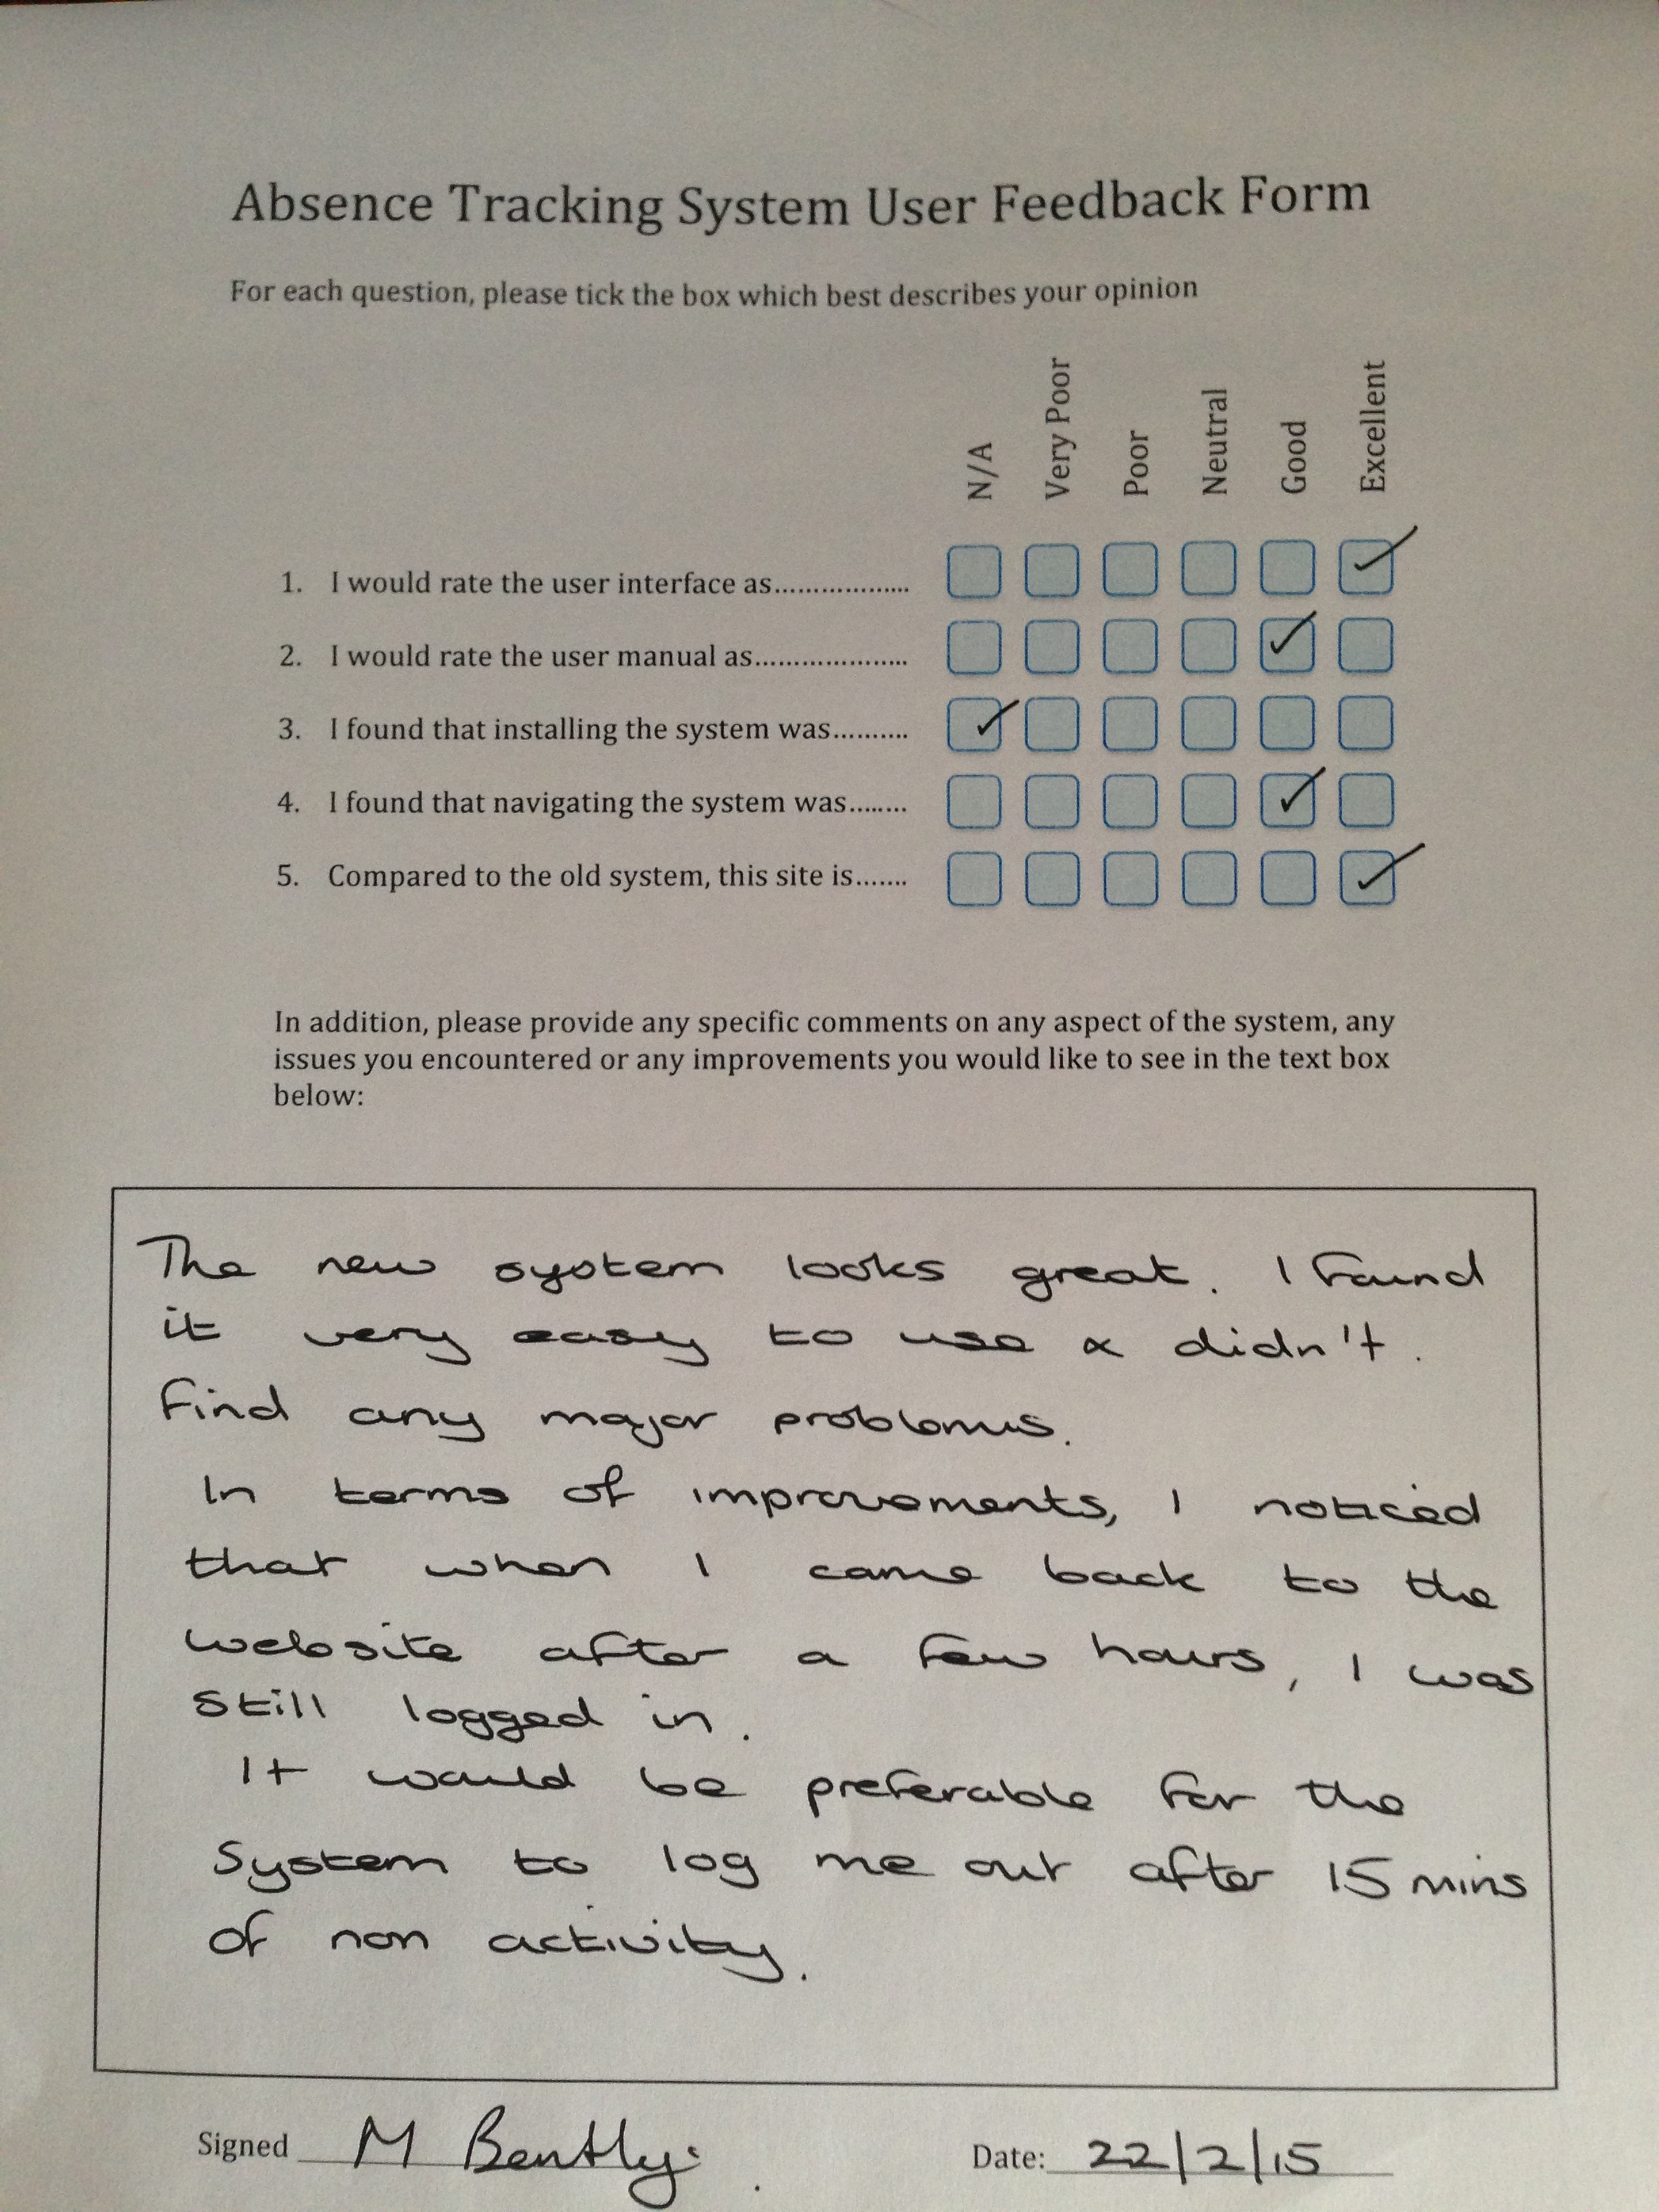 Absence Tracking System User Feedback Form
For each question, please tick the box which best describes your opinion
N/A Very Poor Poor Neutral Good Excellent
1. I would rate the user interface as...................
2. I would rate the user manual as.....................
3. I found that installing the system was..........
4. I found that navigating the system was........
5. Compared to the old system, this site is.......
In addition, please provide any specific comments on any aspect of the system, any
issues you encountered or any improvements you would like to see in the text box
below:
The new system looks great. I found
it very easy to use & didn't.
find any major problems.
In terms of improvements, I noticed
that when I came back to the
website after a few hours, I was
still logged in.
It would be preferable for the
system to log me out after 15 mins
of non activity.
Signed M Bently. Date: 22/2/15